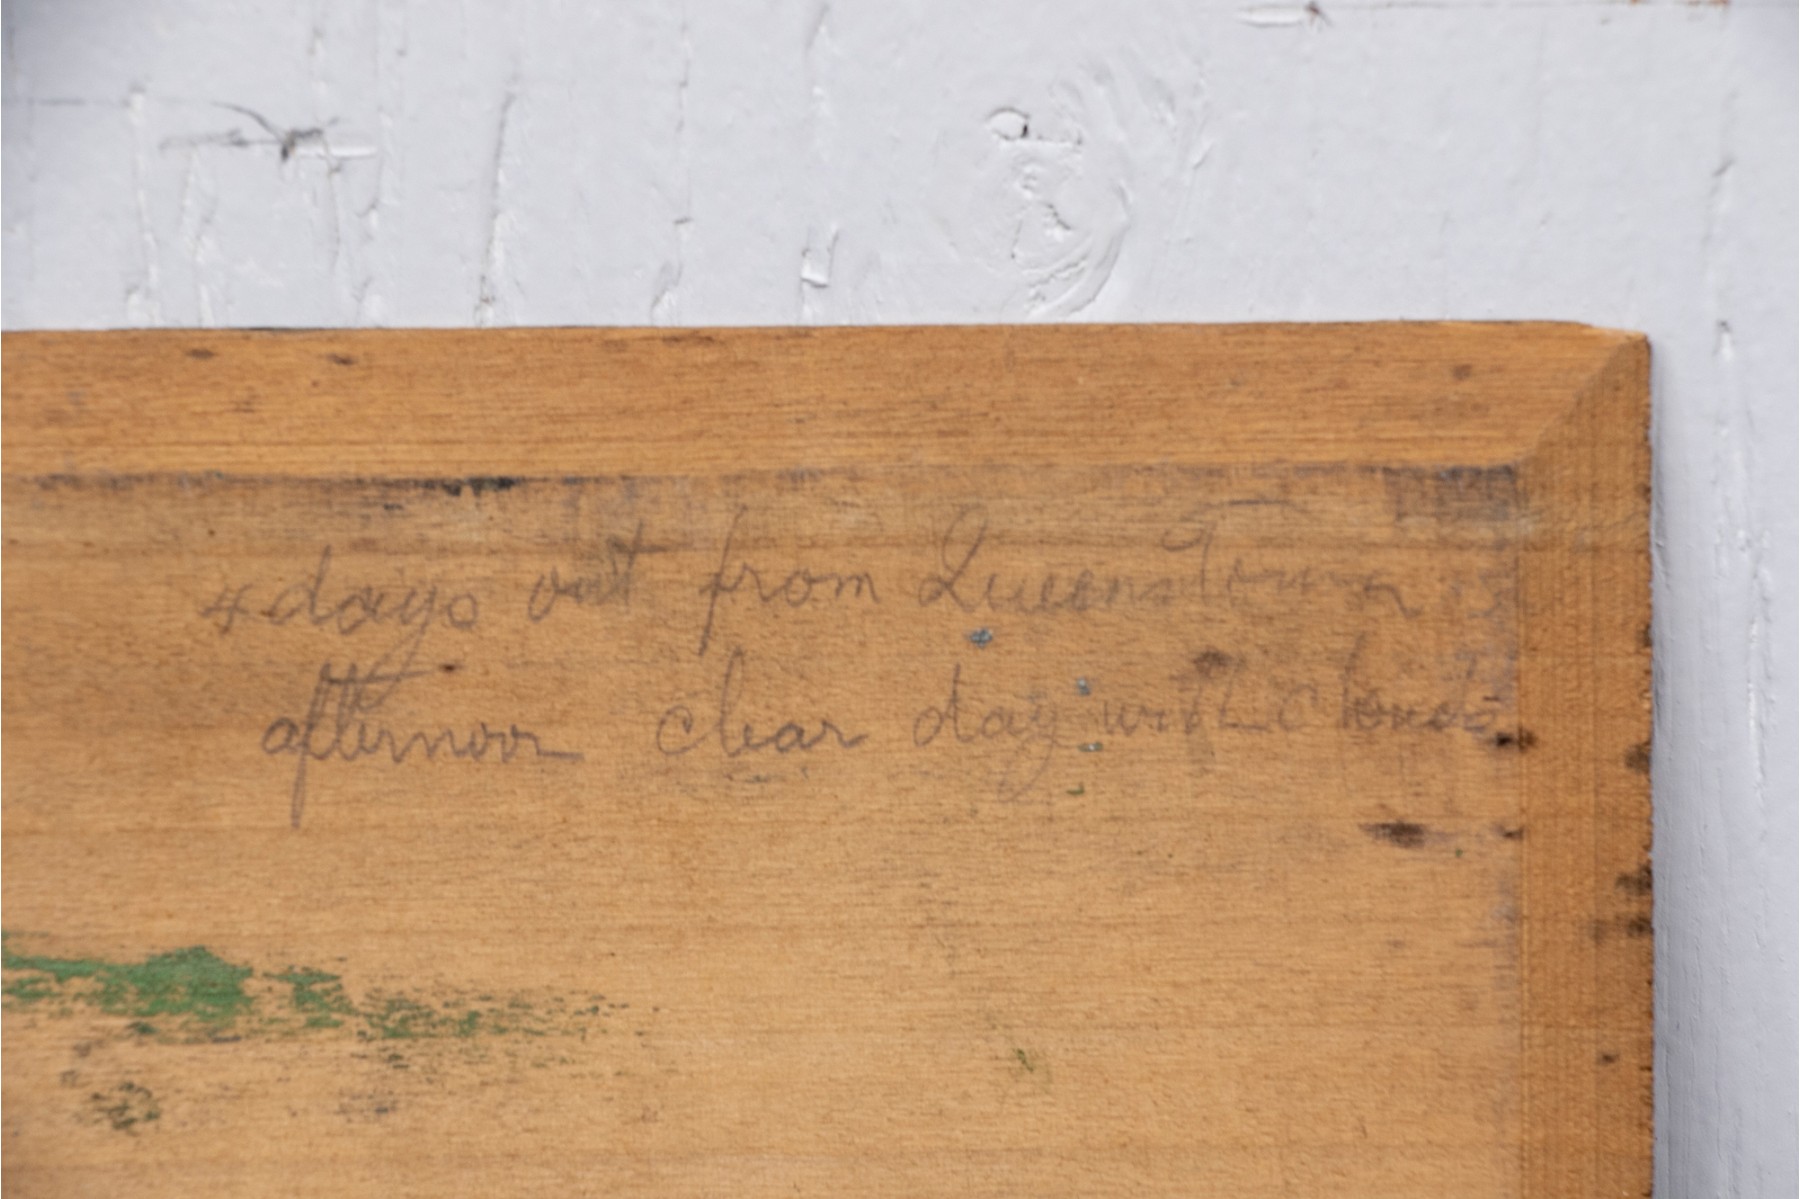 4 days out from Queenstown
afternoon clear day with clouds